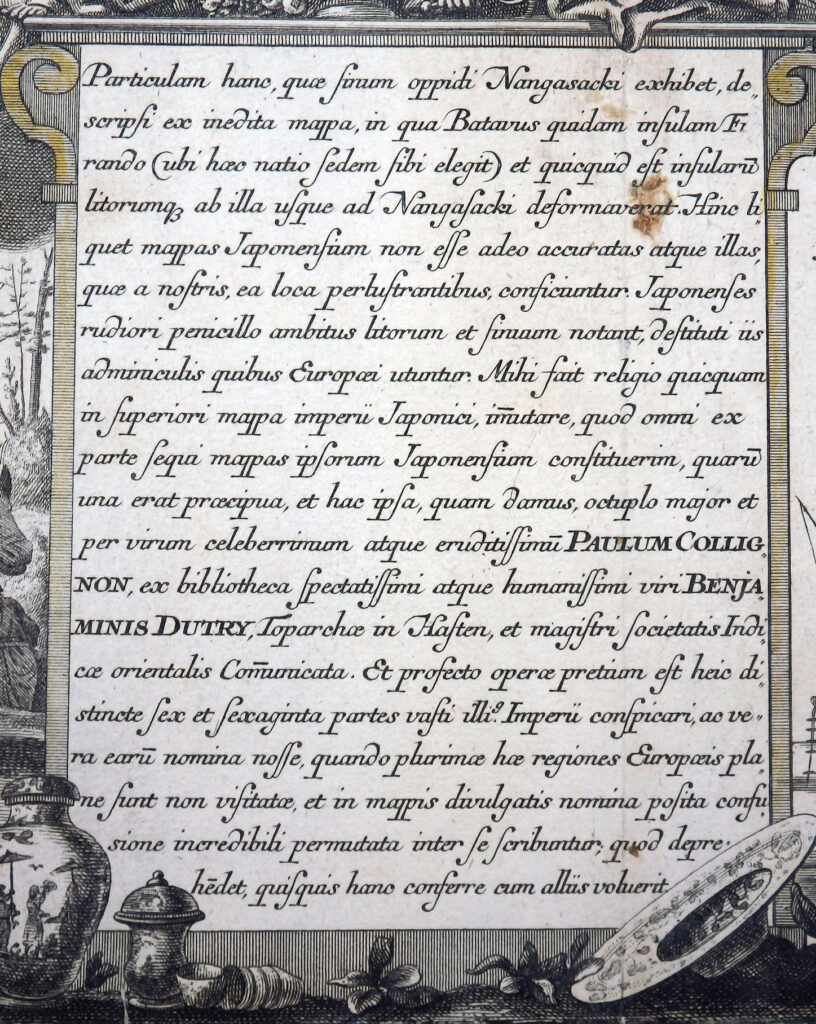 Particulam hanc, quæ ſinum oppidi Nangasacki exhibet, de-
scripſi ex inedita mappa, in qua Batavus quidam inſulam Fi
rando (ubi hæc natio ſedem ſibi elegit) et quicquid eſt inſularū
litorumqꝫ ab illa uſque ad Nangaſacki deformaverat. Hinc li-
quet mappas Japonenſium non eſſe adeo accuratas atque illas,
quæ a noſtris, ea loca perluſtrantibus, conficiuntur. Japonenſes
rudiori penicillo ambitus litorum et ſinuum notant, deſtituti iis
adminiculis quibus Europæi utuntur. Mihi fait religio quicquam
in ſuperiori mappa imperii Japonici, im̄utare, quod omni ex
parte ſequi mappas ipſorum Japonenſium conſtituerim, quarū
una erat præcipua, et hac ipſa, quam damus, octuplo major et
per virum celeberrimum atque eruditiſſimū PAULUM COLLIG-
NON, ex bibliotheca ſpectatiſſimi atque humaniſſimi viri BENJA-
MINIS DUTRY, Toparchæ in Haſten, et magiſtri ſocietatis Indi-
cæ orientalis Com̄unicata. Et profecto operæ pretium eſt heic di-
stincte ſex et ſexaginta partes vaſti illiꝰ Imperii conſpicari, ac ve-
ra earū nomina noſſe, quando plurimæ hæ regiones Europæis pla-
ne ſunt non viſitatæ, et in mappis divulgatis nomina poſita confu-
sione incredibili permutata inter ſe ſcribuntur; quod depre-
hēdet, quiſquis hanc conferre cum alliis voluerit